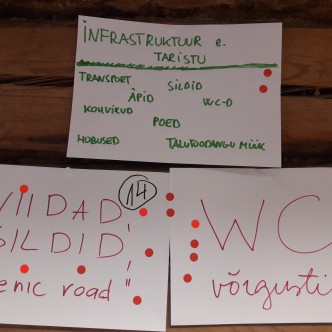 INFRASTRUKTUUR e.
TARISTU
TRANSPORT SILDID
ÄPID WC-D
KOHVIKUD
POED
HOBUSED TALUTOODANGU MÜÜK
VIIDAD, 14
SILDID,
enic road"
WC
võrgusti